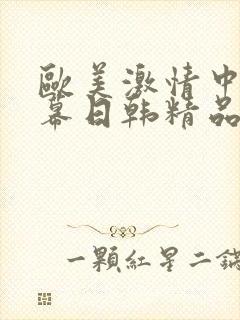 歐美激情中
幕日韩精品
一顆紅星二鍋